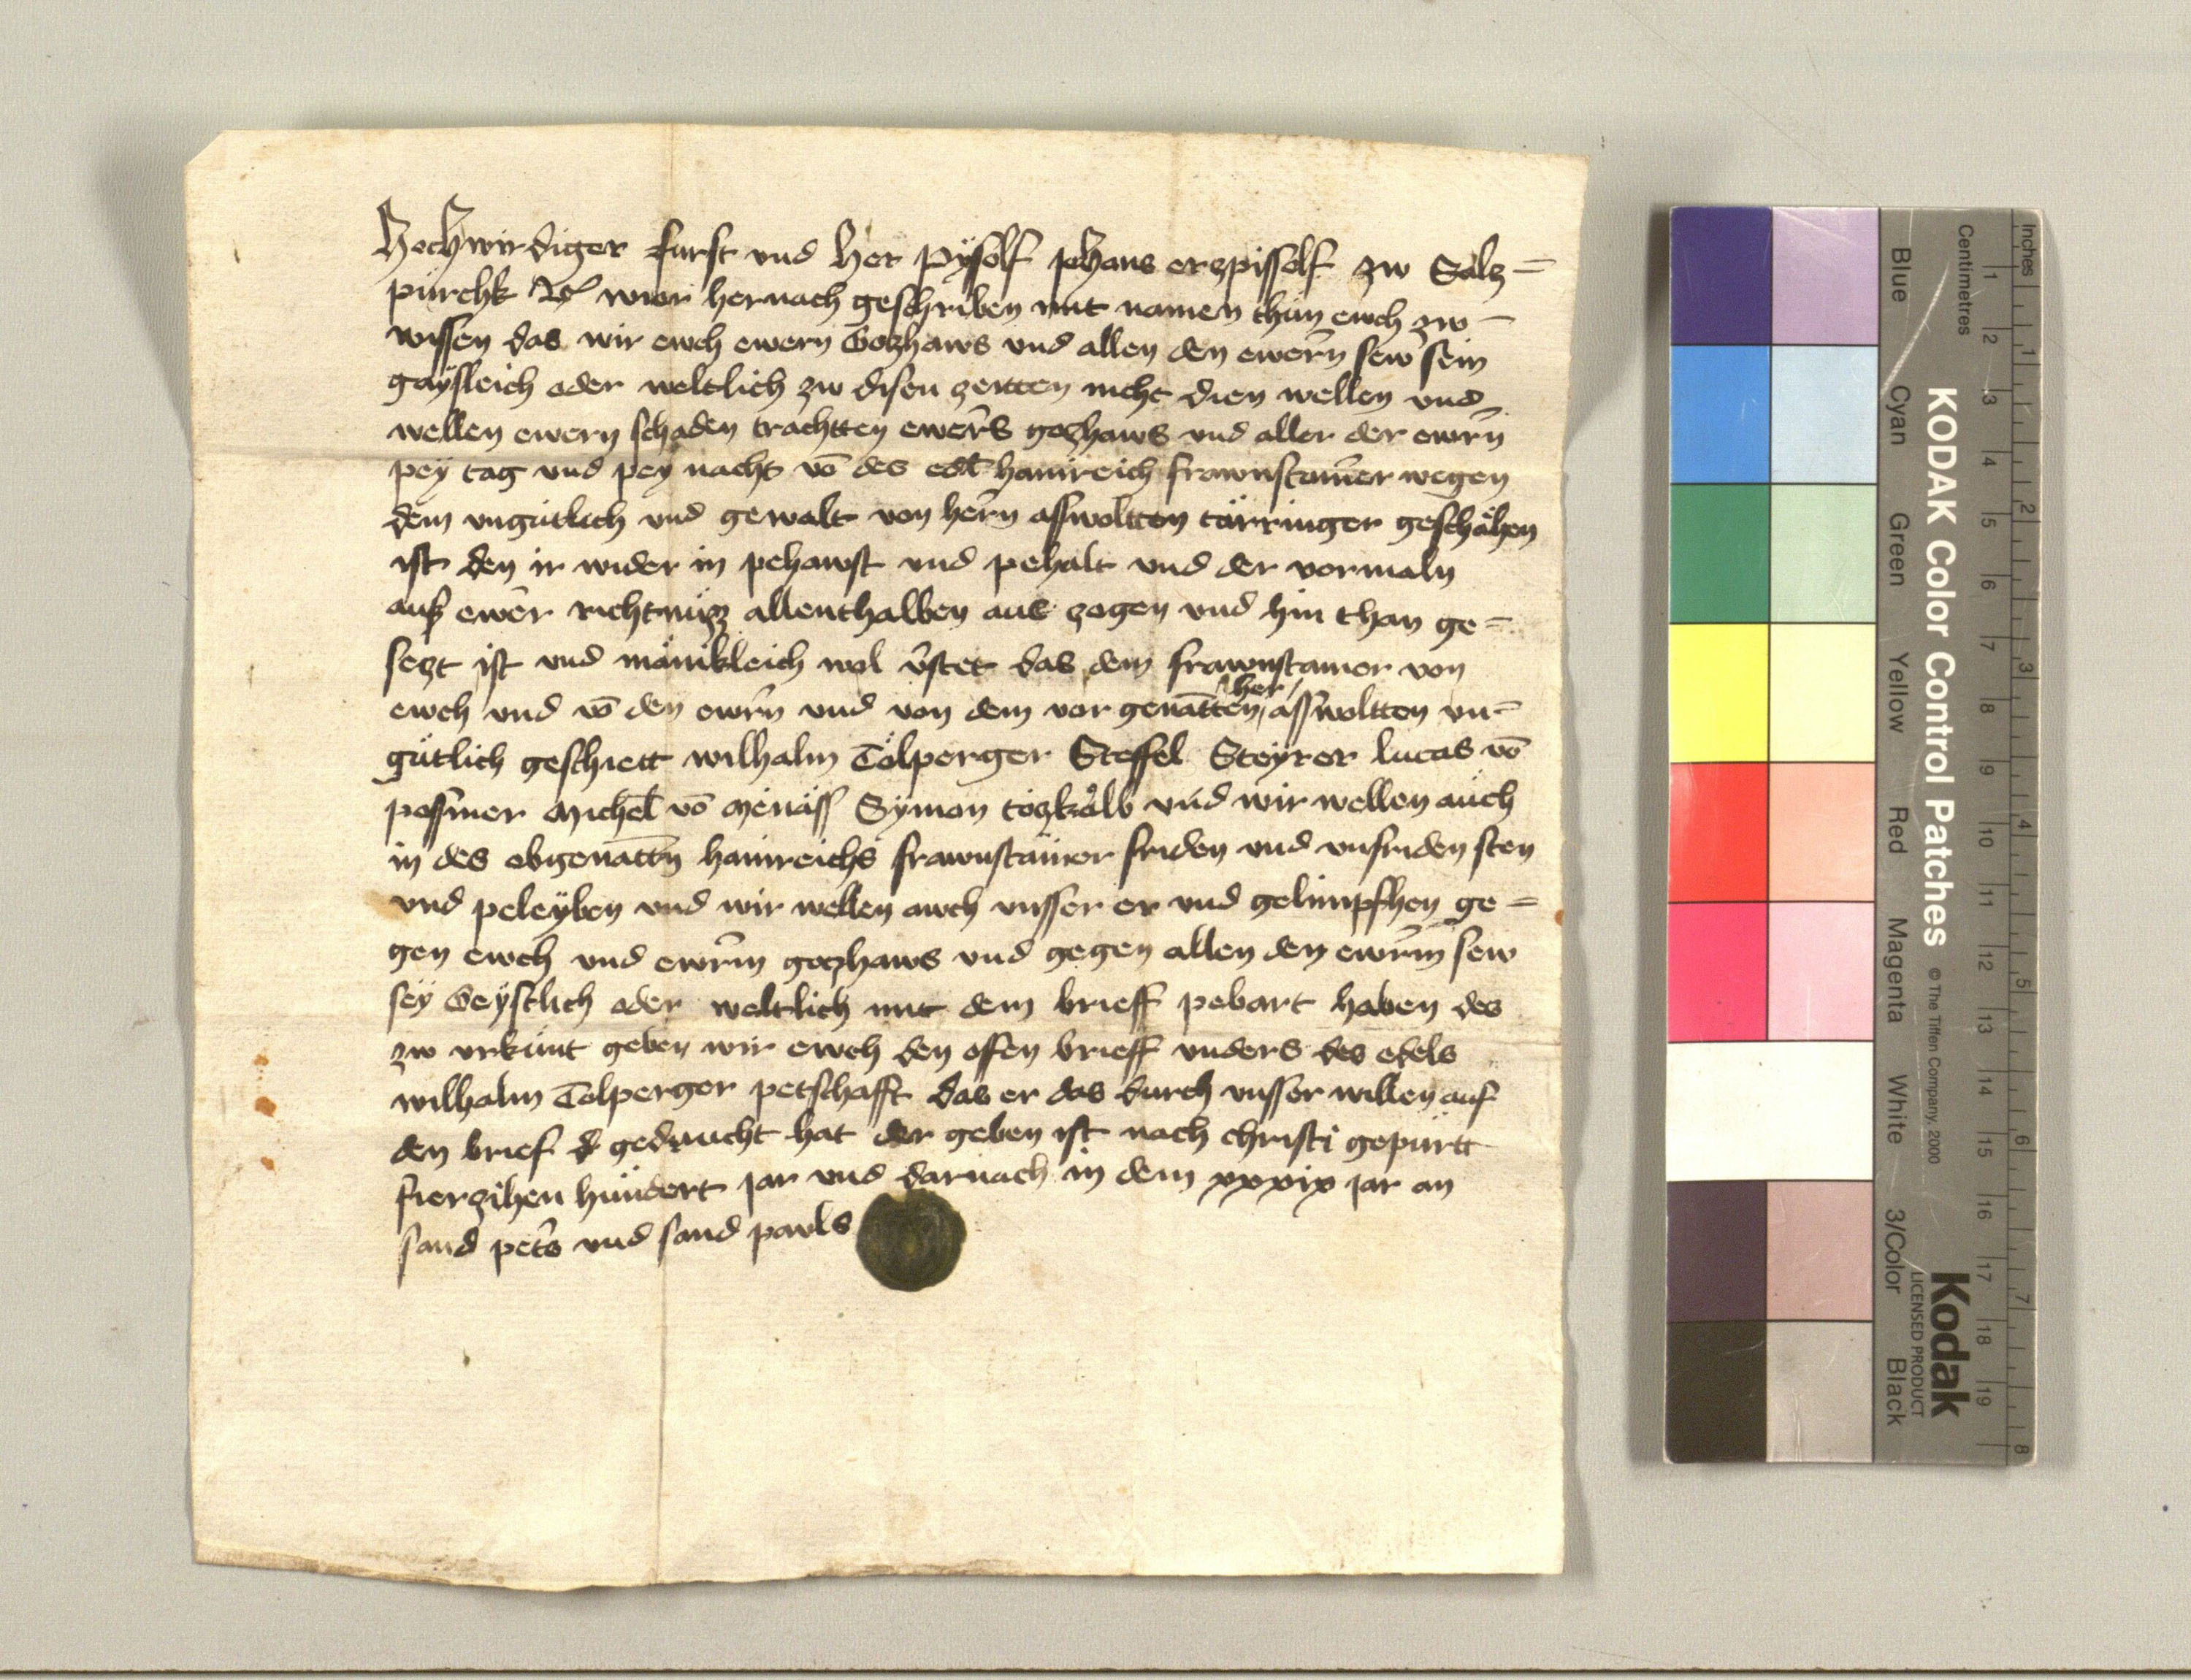 Hochwirdiger furst und her Pyscholf Johans erzpisscholf zw Salz=
pürchk Wir wier hernach geschriben mit namen thün ewch zw
wissen das wir ewch ewern Gozhaws und allen den ewern̄ sew sein
gaÿsleich oder weltlich zw disen zeitten nicht dien wellen und
wellen ewern schaden trachtten ewer̄s gozhaws und aller der ewrn̄
peÿ tag und pey nacht vō des edl̄ hainreich frawnstain̄er wegen
dem ungütlich und gewalt von hern̄ asswoltten tärringer geschähen
ist den ir wider in pehawst und pehalt und der vormaln
aus ewer̄ richtnüzz allenthalben aus zogen und hin than ge=
sezt ist und mänikleich wol v̄stet das dem frawnstainer von
ewch und vō den ewrn̄ und von dem vor genātten her asswoltten un=
gütlich geschiett wilhalm Tölperger Steffel Steÿrer lucas vō
possmer Michel̄ vō Symon tözkälb und wir wellen auch
in des obgenāttn̄ hainreichs frawnstainer friden und unfriden sten
und peleÿben und wir wellen awch unsser er und gelimpfhen ge=
gen ewch und ewrm̄ gozhaws und gegen allen den ewrm̄ sew
seÿ Geÿstlich oder weltlich mit dem brieff pebart haben des
zw urkünt geben wir ewch den offen brieff unders des edels
wilhalm Tolperger petschafft das er das durch unsser willen auf
den brief d gedrucht hat der geben ist nach christi gepürtt
fierzihen hündert jar und darnach in dem xxxix jar an
sand pet̄s und sand pauls
KODAK Color Control Patches © The Tiffen Company, 2000
Kodak
LICENSED PRODUCT
Inches 1 2 3 4 5 6 7 8
Centimetres 1 2 3 4 5 6 7 8 9 10 11 12 13 14 15 16 17 18 19
Blue Cyan Green Yellow Red Magenta White 3/Color Black